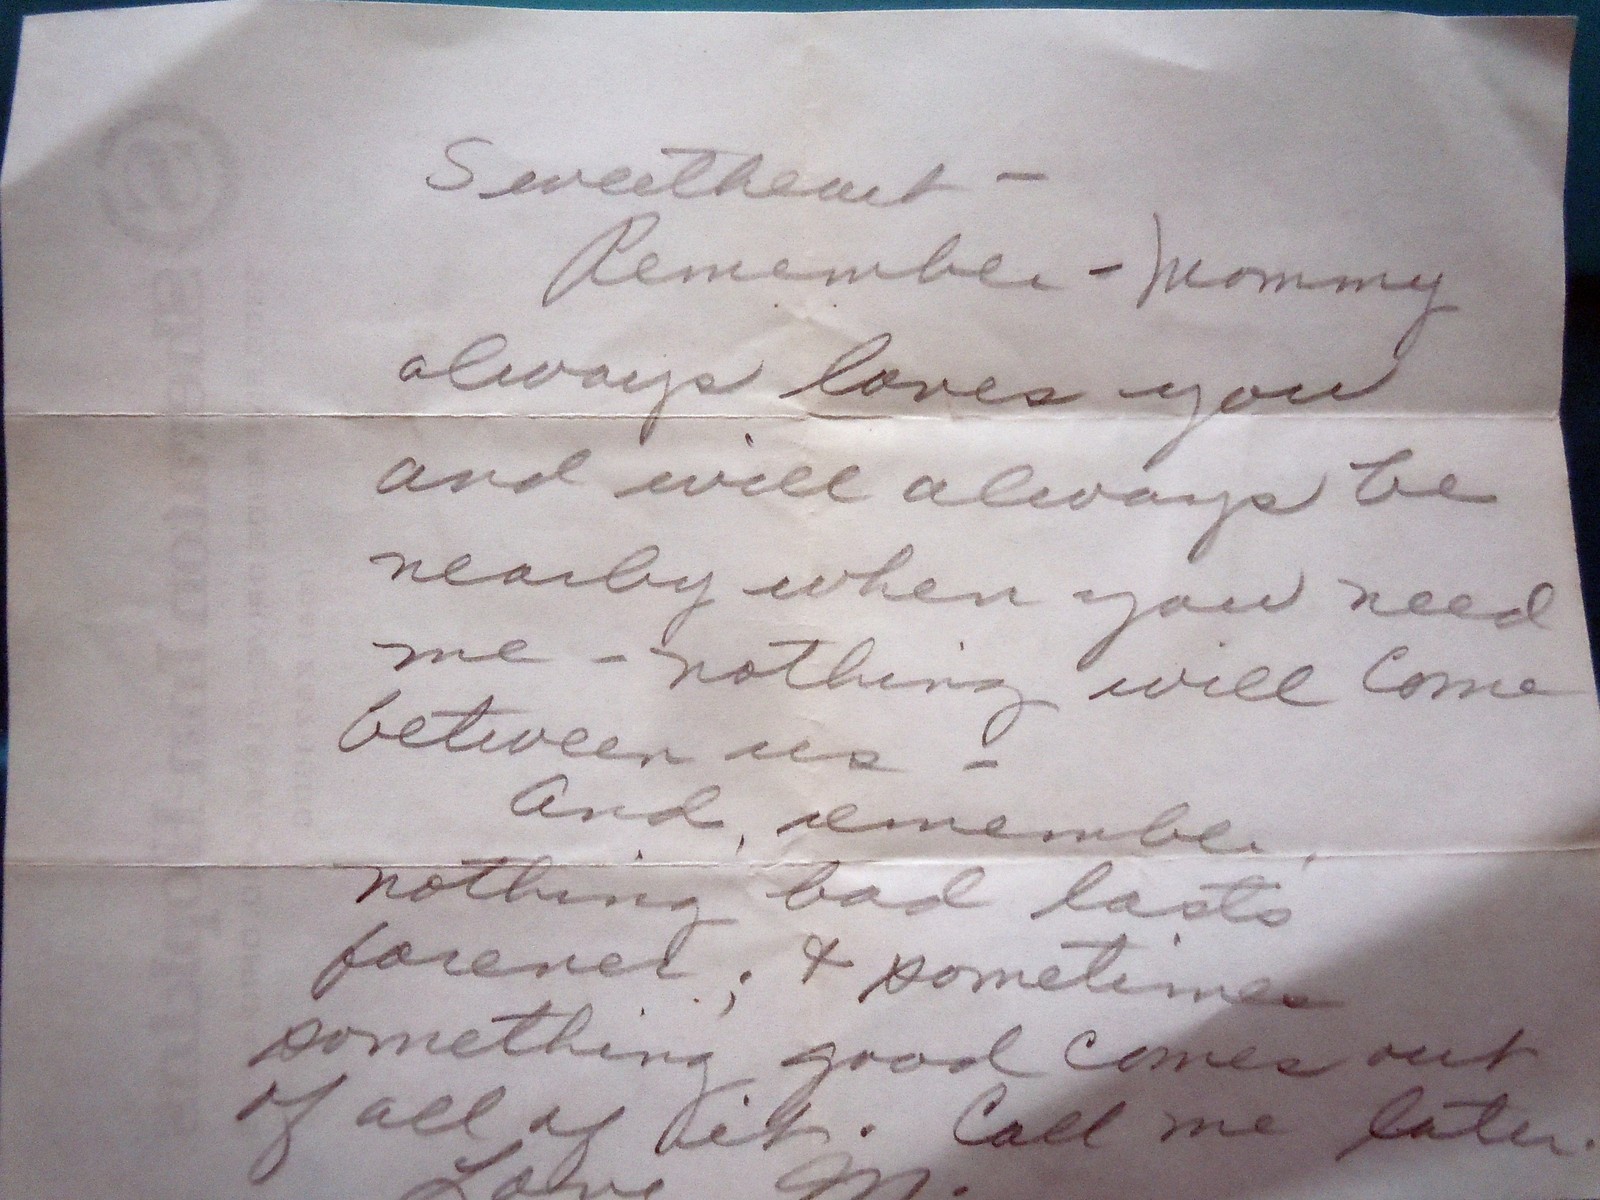 Sweetheart -
Remember - Mommy
always loves you
and will always be
nearby when you need
me - nothing will come
between us -
And, remember,
nothing bad lasts
forever; & sometimes
something good comes out
of all of it. Call me later.
Love M.